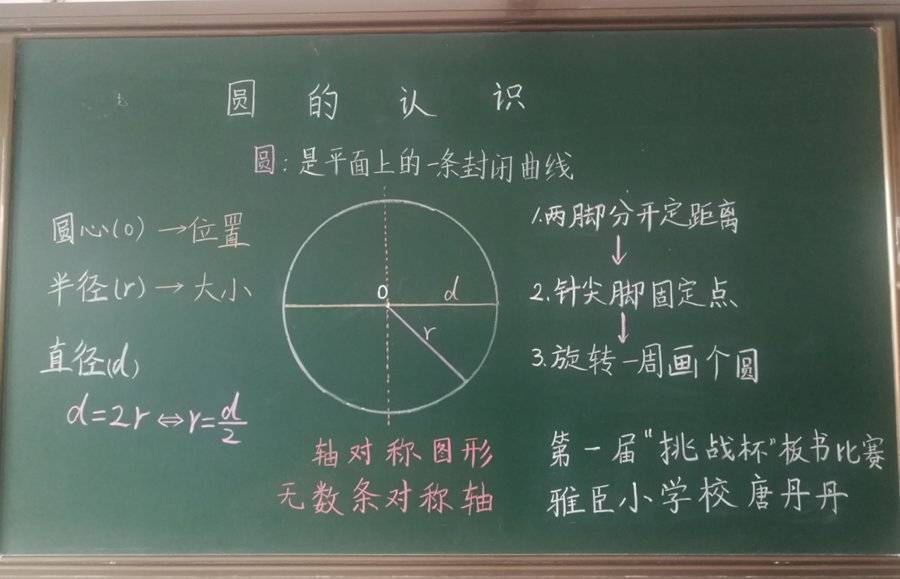 圆的认识
圆:是平面上的一条封闭曲线
圆心(O)→位置
半径(r)→大小
直径(d)
d=2r⇔r=d/2
O
d
r
轴对称图形
无数条对称轴
1.两脚分开定距离
↓
2.针尖脚固定点
↓
3.旋转一周画个圆
第一届“挑战杯”板书比赛
雅臣小学校唐丹丹